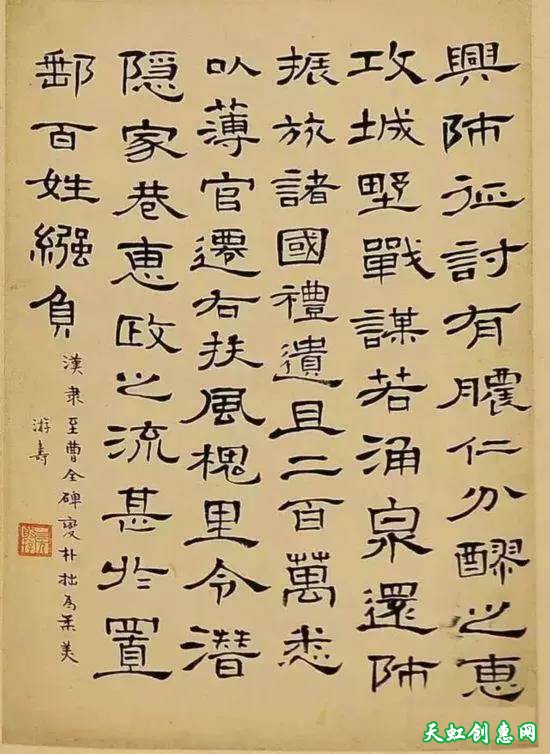 興師征討有膿仁分醪之惠
攻城墅戰謀若涌泉還師
振旅諸國禮遺且二百萬悉
以薄官遷右扶風槐里令潛
隱家巷惠政之流甚於置
郵百姓繈負
漢隶至曹全碑變朴拙為柔美
游壽
天虹创惠网